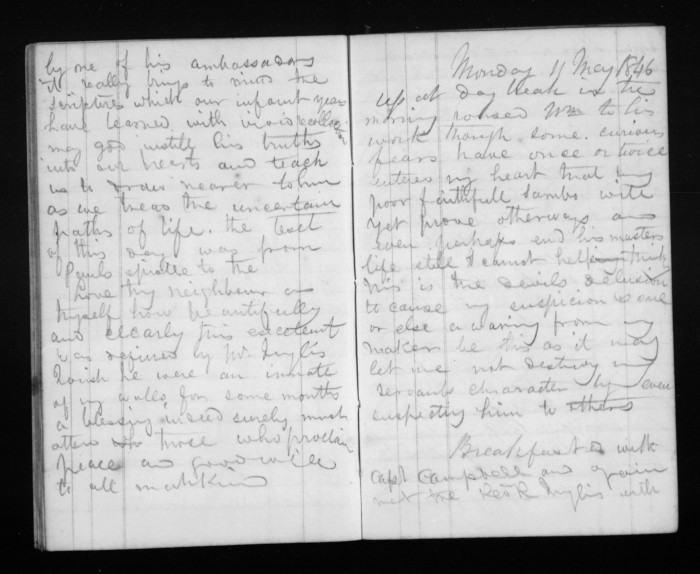 by one of his ambassadors
it really brings to mind the
scriptures which our infant years
have learned with
may god instill his truths
into our hearts and teach
us to draw nearer to him
as we tread the uncertain
paths of life. the text
of this day was from
Pauls to the
love thy neighbour as
thyself how beautifully
and clearly this excelent
was defined by Mr. Inglis
I wish he were an inmate
of my walls for some months
a blessing indeed surely must
atten those who proclaim
peace and good will
to all mankind
Monday 11 May 1846
Up at day break in the
morning roused Wm to his
work though some curious
fears have once or twice
entered my heart that my
poor faithfull Sambo will
yet prove otherways and
even perhaps end his masters
life still I cannot help think
this is the devils delusion
to cause my suspicion
or else a warning from my
maker be this as it may
let me not destroy my
servants character by even
suspecting him to others
Breakfasted with
Capt Campbell and again
met the Revd R Inglis with